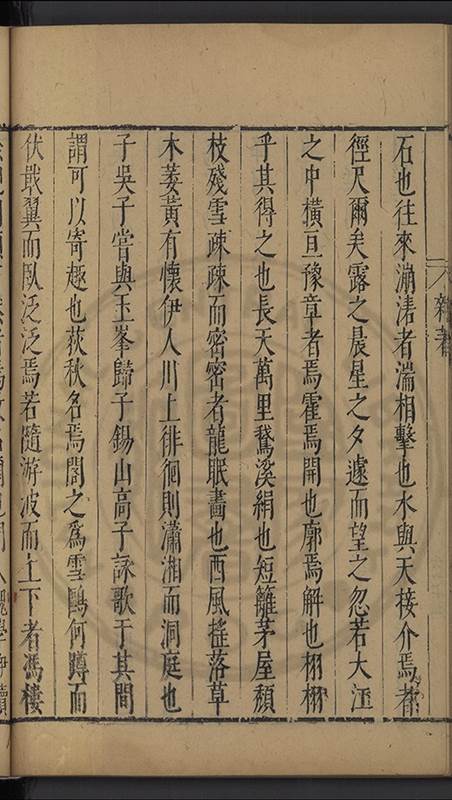 石也往來漰湱者湍相擊也水與天接介焉者
徑尺爾矣露之晨星之夕遽而望之忽若大江
之中橫亘豫章者焉霍焉開也廓焉解也栩栩
乎其得之也長天萬里鵞溪絹也短籬茅屋頹
枝殘雪疎疎而密密者龍眠畵也酉風搖落草
木萎黃有懷伊人川上徘徊則瀟湘而洞庭也
子吳子嘗與玉峯歸子錫山高子詠歌于其間
謂可以寄趣也荻秋名焉閣之爲雪鷗何蹲而
伏戢翼而臥泛泛焉若隨游波而上下者馮棲
雜著